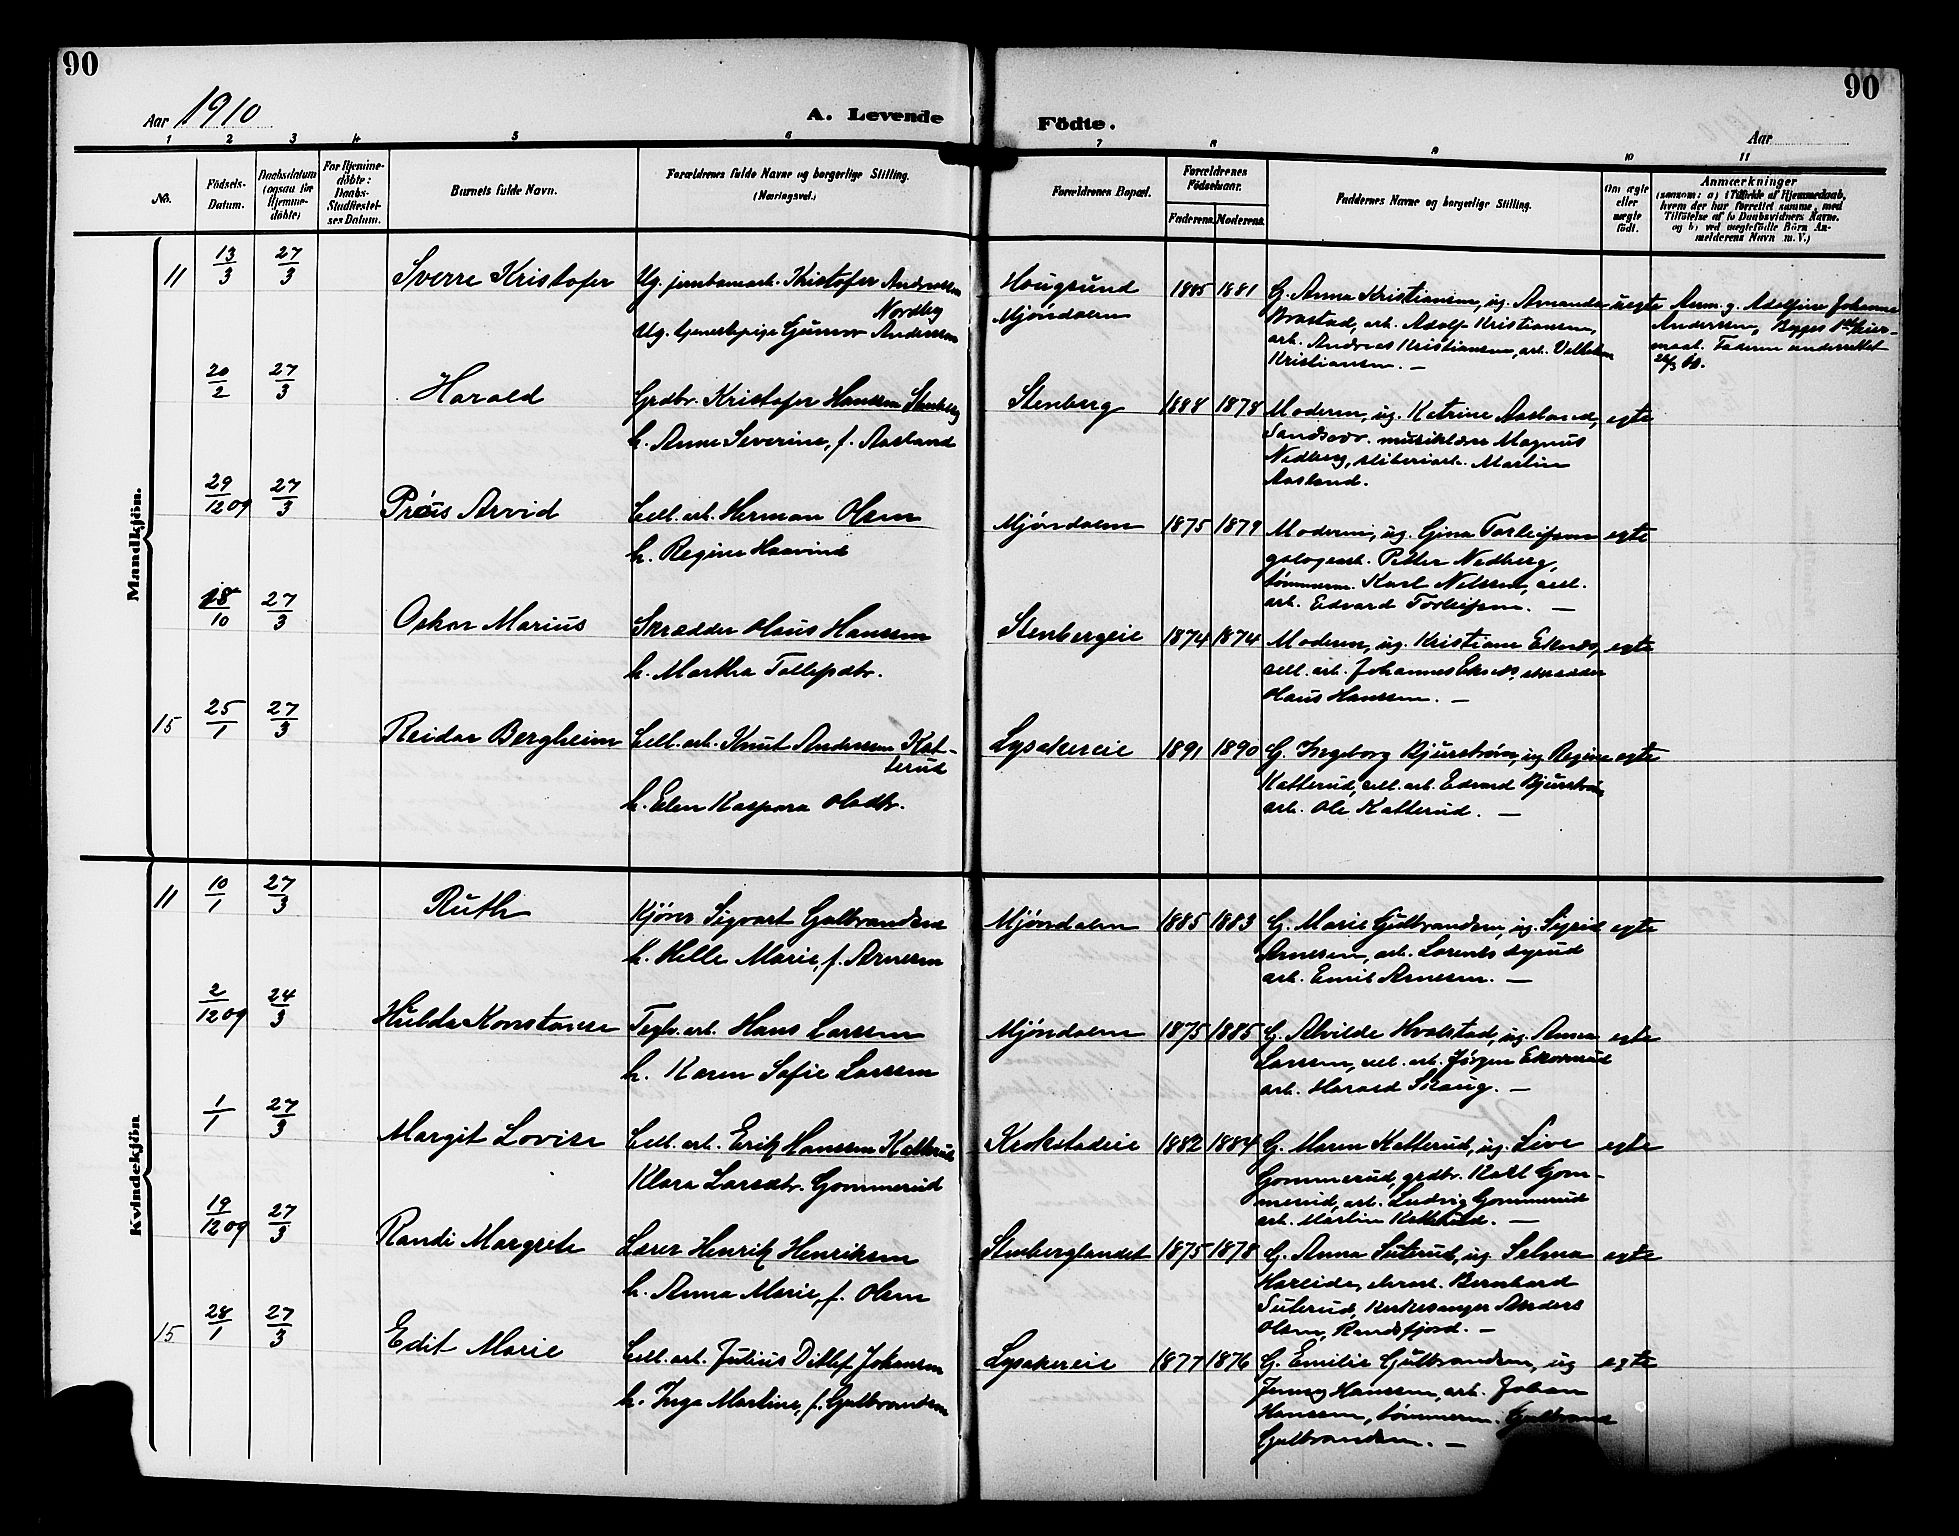 90
90
Aar 1910
A. Levende
Födte.
Aar
1 2 3 4 5 6 7 8 9 10 11
No.
Födsels-Datum.
Daabsdatum (ogsaa for Hjemme-döbte)
For Hjemme-döbte: Daabs-Stadfæstel-ses Datum.
Barnets fulde Navn.
Forældrenes fulde Navne og borgerlige Stilling. (Næringsvei.)
Forældrenes Bopæl.
Forældrenes Födselsaar.
Faderens. Moderens.
Faddernes Navne og borgerlige Stilling.
Om ægte eller uægte födt.
Anmærkninger
(saasom: a) Tilfælde af Hjemmedaab,
hvem der har forrettet samme, med
Tilföielse af to Daabsvidners Navne.
og b) ved uegtefödte Börn An-
melderens Navn m. V.)
Mandkjön.
11 13/3 27/3 Sverre Kristofer
Ug. jernbanearb. Kristofer Andresen
Nordby
Ug. tjenestepige Gunvor Anderssen
Hougsund
Mjöndalen
1885 1881
G. Anna Kristiansen, ug. Amanda
Brastad, arb. Adolf Kristiansen,
arb. Andreas Kristiansen, arb. Vilhelm
Kristiansen. —
uegte
Anm. g. Adolfine Johanne
Anderssen, Bygges
Faderen underrettet
20/2 27/3 Harald
Grdbr. Kristofer Hanssen Stenberg
h. Anne Severine, f. Aasland
Stenberg 1884 1878
Moderen, ug. Katrine Aasland,
Sandsvær. musiklærer Magnus
Nedberg, sliberiarb. Martin
Aasland.
egte
29/12 09 27/3 Préus Arvid
Cell. arb. Herman Olsen
h. Regine Haavind
Mjöndalen 1875 1879
Moderen, ug. Gina Torleifsen
Petter Nedberg,
tömmerm. Karl Nilssen, cell.
arb. Edvard Torleifsen. —
egte
18/10 27/3 Oskar Marius
Skrædder Olaus Hanssen
h. Martha Tollefsdtr.
Stenbergeie 1874 1874
Moderen, ug. Kristiane Eknes,
cell. arb. Johannes Eknes, skrædder
Olaus Hanssen. —
egte
15 25/1 27/3 Reidar Bergheim
Cell. arb. Knut Anderssen Kat-
terud
h. Elen Kaspara Olsdtr.
Lysakereie 1891 1890
G. Ingeborg Bjurström, ug. Regine
Katterud, cell. arb. Edvard Bjurström
arb. Ole Katterud. —
egte
Kvindekjön
11 10/1 27/3 Ruth
Kjörer Sigvart Gulbrandsen
h. Helle Marie, f. Arnesen
Mjöndalen 1885 1883
G. Marie Gulbrandsen, ug. Sigrid
Arnesen, arb. Lorents Lyrud
arb. Emil Arnesen. —
egte
2/12 09 24/3 Hulda Konstanse
Teglv. arb. Hans Larssen
h. Karen Sofie Larssen
Mjöndalen 1875 1885
G. Alvilde Hvalstad, ug. Anna
Larssen, cell. arb. Jörgen Ekornrud
arb. Harald Skaug. —
egte
1/1 27/3 Margit Lovise
Cell. arb. Erik Hanssen Katterud
Klara Larsdtr. Gommerud
Krokstadeie 1882 1884
G. Maren Katterud, ug. Live
Gommerud, grdbr. Karl Gom-
merud, arb. Ludvig Gommerud
arb. Martin Katterud. —
egte
19/12 09 27/3 Randi Margrete
Lærer Henrik Henriksen
h. Anna Marie, f. Olsen
Stenberglandet 1875 1878
G. Anna Suterud, ug. Selma
Hareide, Bernhard
Suterud, kirkesanger Anders
Olsen, Randsfjord. —
egte
15 28/1 27/3 Edit Marie
Cell. arb. Julius Ditlef Johansen
h. Inga Martine, f. Gulbrandsen
Lysakereie 1877 1876
G. Emilie Gulbrandsen, ug
Jenny Hanssen, arb. Johan
Hanssen, tömmerm. Gulbrand
Gulbrandsen. —
egte